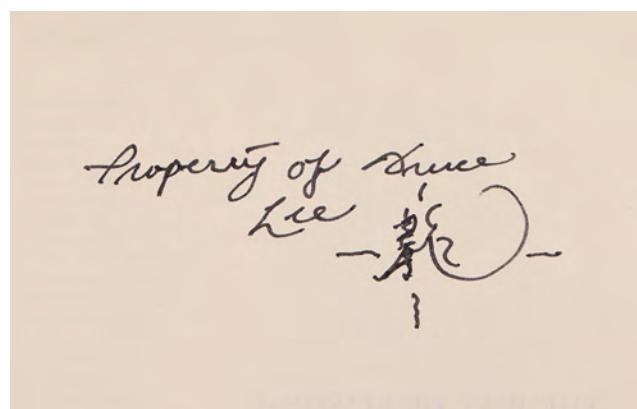 Property of Bruce
Lee 龍